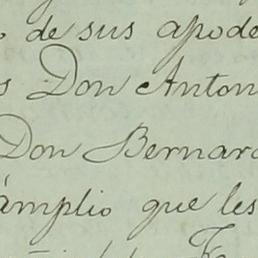 de sus apode
s Don Anton
Don Bernar
ámplio que les